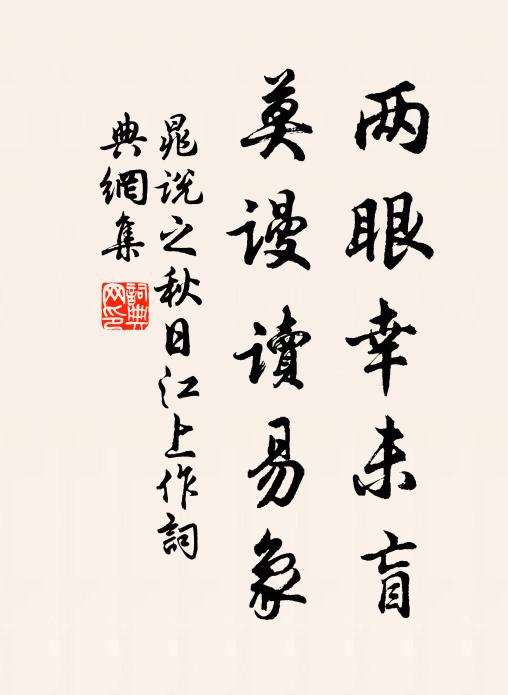 两眼幸未盲
莫谩讀易象
晁説之秋日江上作詞
典網集
詞典网印